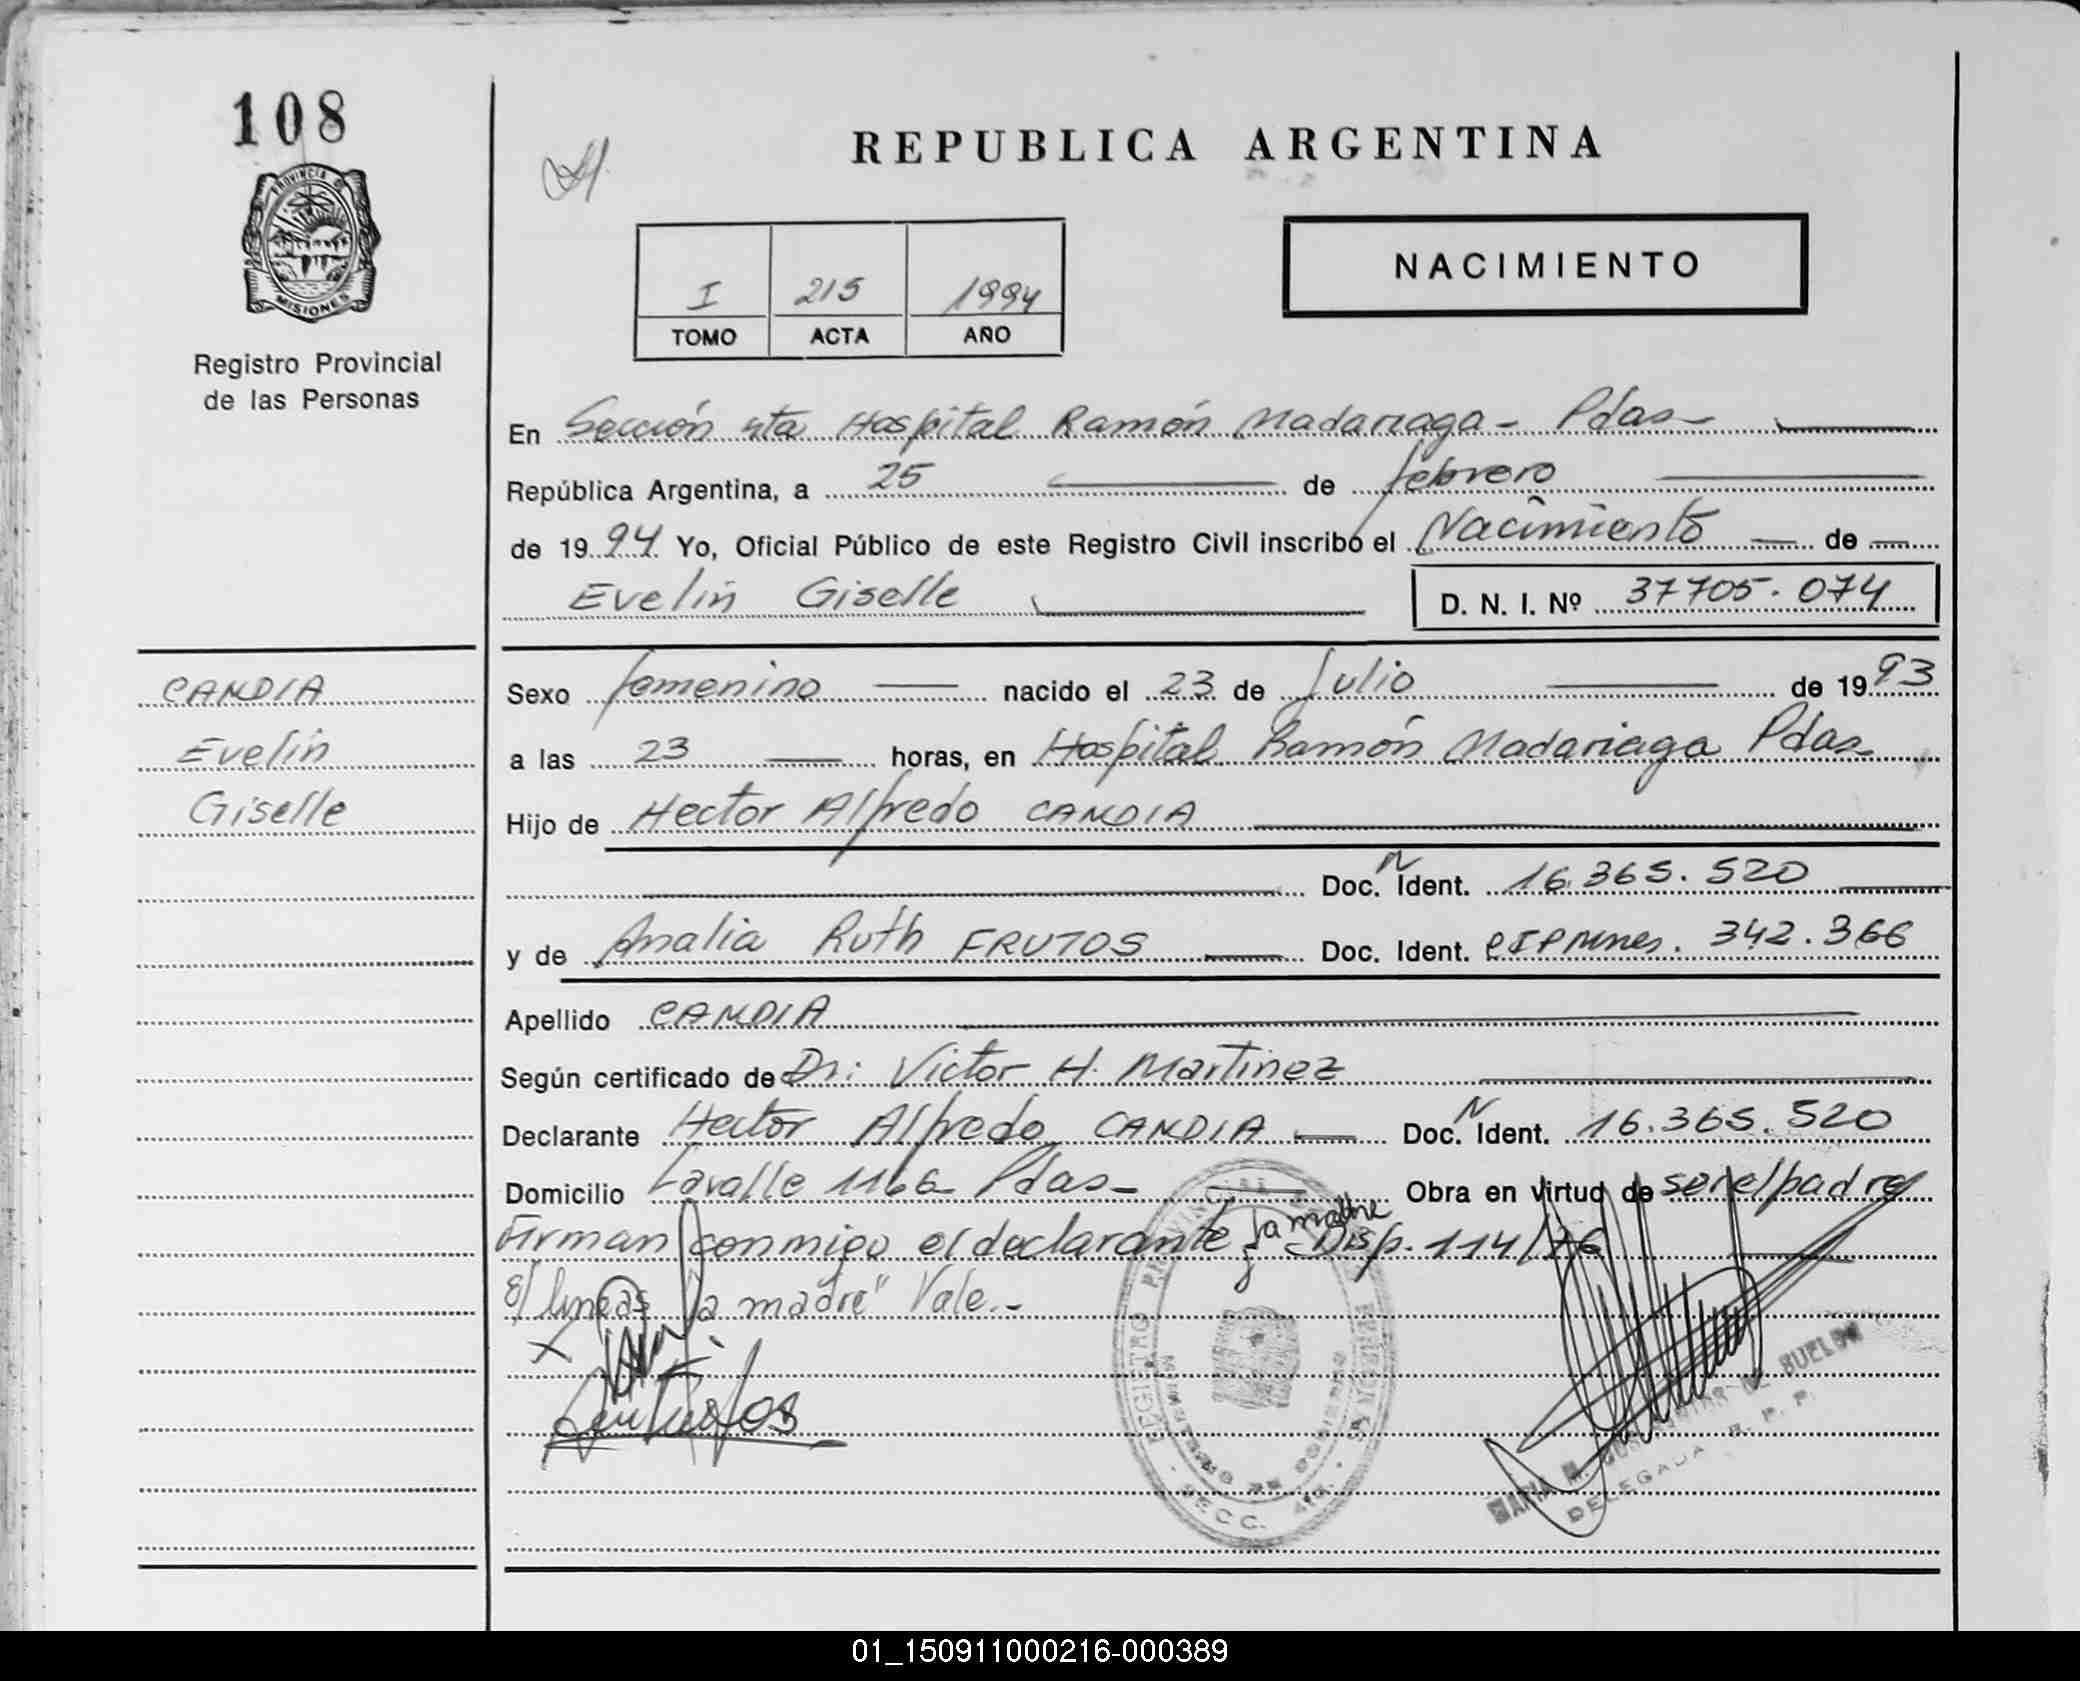 108
REPUBLICA ARGENTINA
PROVINCIA DE
MISIONES
Registro Provincial
de las Personas
I 215 1994
TOMO ACTA AÑO
NACIMIENTO
En Sección 4ta Hospital Ramón Madariaga - Pdas
República Argentina, a 25 de febrero
de 1994 Yo, Oficial Público de este Registro Civil inscribo el Nacimiento de
Evelin Giselle D. N. I. Nº 37705.074
CANDIA
Evelin
Giselle
Sexo femenino nacido el 23 de Julio de 1993
a las 23 horas, en Hospital Ramón Madariaga Pdas
Hijo de Hector Alfredo CANDIA
Doc. N Ident. 16.365.520
y de Analia Ruth FRUTOS Doc. Ident. CIPMnes. 342.366
Apellido CANDIA
Según certificado de Dr: Victor H. Martinez
Declarante Hector Alfredo CANDIA Doc. N Ident. 16.365.520
Domicilio Lavalle 1166 Pdas - Obra en virtud de ser el padre
Firman conmigo el declarante y la madre Disp. 114/76
E/ lineas "la madre" Vale.-
REGISTRO PROVINCIAL DE LAS PERSONAS
MINISTERIO DE GOBIERNO
SECC. 4ta.
MARIA
DELEGADA R. P. P.
01_150911000216-000389